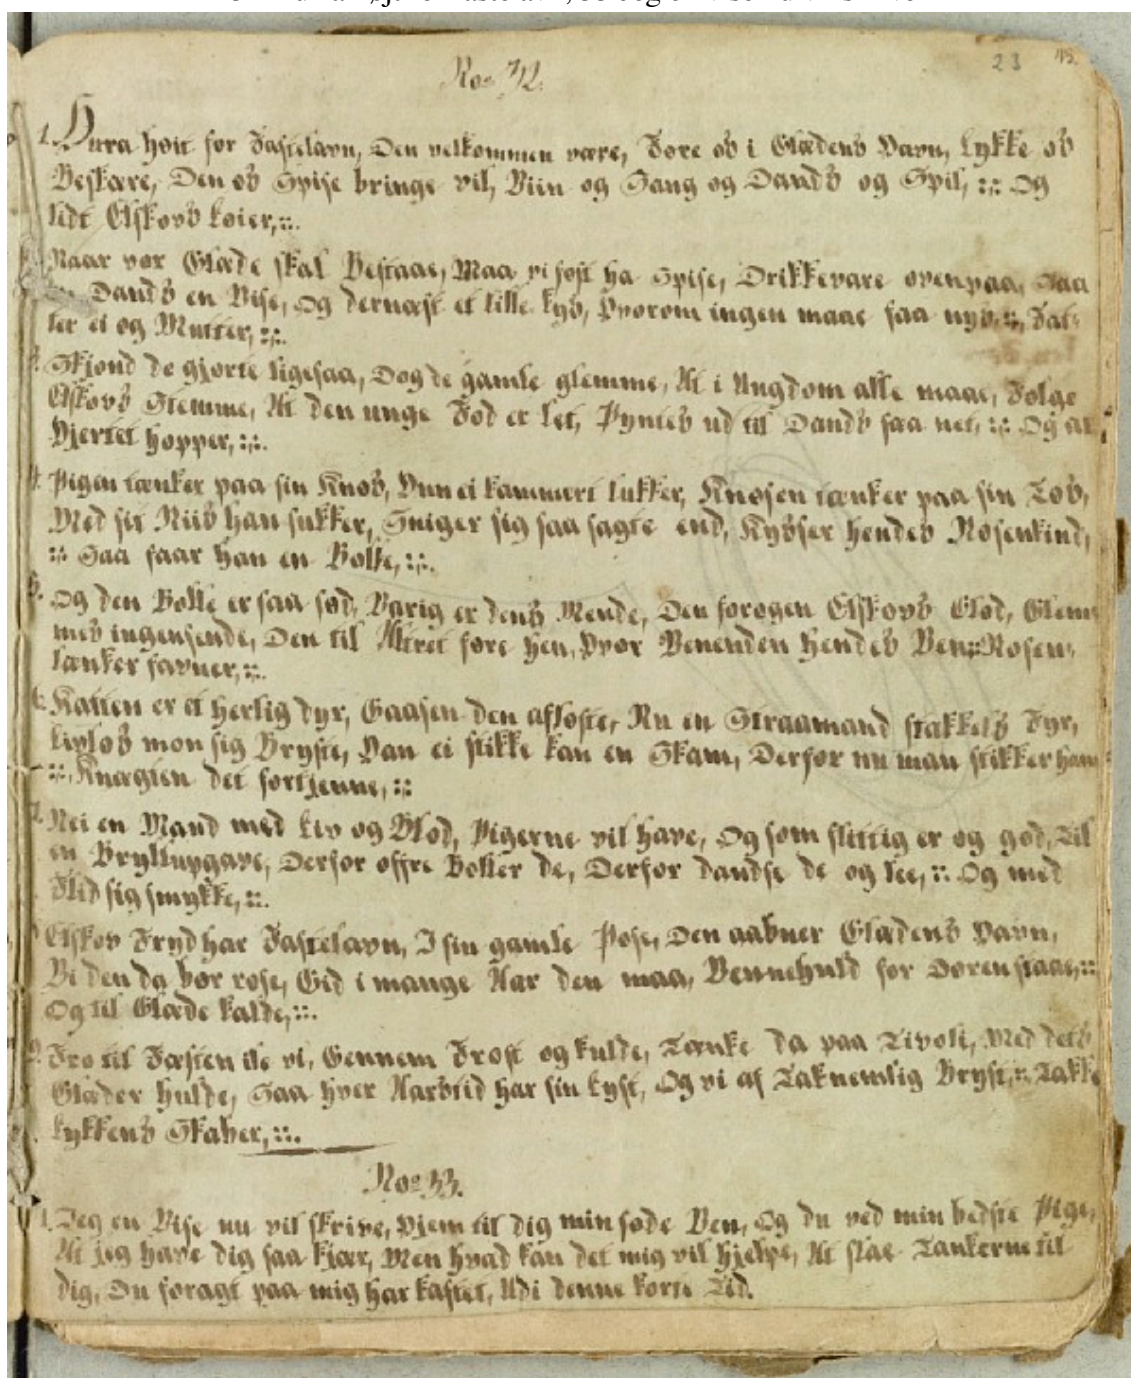 23
No 32.
1. Hura høit for Fastelavn, Den velkommen være, Føre os i Glædens Havn, Lykke os
Beskære, Den os Spise bringe vil, Viin og Sang og Dands og Spil, :,: Og
lidt Elskovs Løier, :,:.
Naar vor Glæde skal Bestaae, Maa vi føst ha Spise, Drikkevare ovenpaa, Saa
Dands en Vise, Og dernæst et lille Kys, Hvorom ingen maae faa nys, :,: Fat-
ter ei og Mutter, :,:.
3. Skjønd de gjorte ligesaa, Dog de gamle glemme, At i Ungdom alle maae, Følge
Elskovs Stemme, At den unge Fod er let, Pyntes ud til Dands saa net, :,: Og at
Hjertet hopper, :,:.
4. Pigen tænker paa sin Knøs, Hun ei kammert lukker, Knøsen tænker paa sin Tøs,
Med sit Riis han sukker, Sniger sig saa sagte end, Kysser hendes Rosenkind,
:,: Saa faar han en Bolle, :,:.
5. Og den Bolle er saa sød, Varig er dens Mende, Den forøgen Elskovs Glød, Glem-
mes ingensende, Den til Altret føre hen, Hvor Venenden hendes Ven :,: Rosen-
lænker favner, :,:.
6. Katten er et herlig dyr, Gaasen den afløste, Nu en Straamand stakkels Fyr,
Livløs mon sig Bryste, Han ei stikke kan en Skam, Derfor nu man stikker ham
:,: Knægten det fortjenne, :,:
7. Nei en Mand med Liv og Blod, Pigerne vil have, Og som flittig er og god, Til
en Bryllupgave, Derfor offre Boller de, Derfor dandse de og lee, :,: Og med
Flid sig smykke, :,:.
Elskov Fryd har Fastelavn, I sin gamle Pose, Den aabner Glædens Havn,
Vi den da bør rose, Gid i mange Aar den maa, Vennehuld for Døren staae, :,:
Og til Glæde kalde, :,:.
9. Fro til Fæsten ile vi, Gennem Frost og Kulde, Tænke da paa Tivoli, Med dets
Glæder hulde, Saa hver Aarstid har sin Lyst, Og vi af Taknemlig Bryst, :,: Takke
Lykkens Skaber, :,:.
No 33.
1. Jeg en Vise nu vil skrive, Hjem til dig min søde Ven, Og du ved min bedste Pige,
At jeg have dig saa kjær, Men hvad kan det mig vil hjelpe, At slae Tankerne til
dig, Du foragt paa mig har kastet, Udi denne korte Tid.